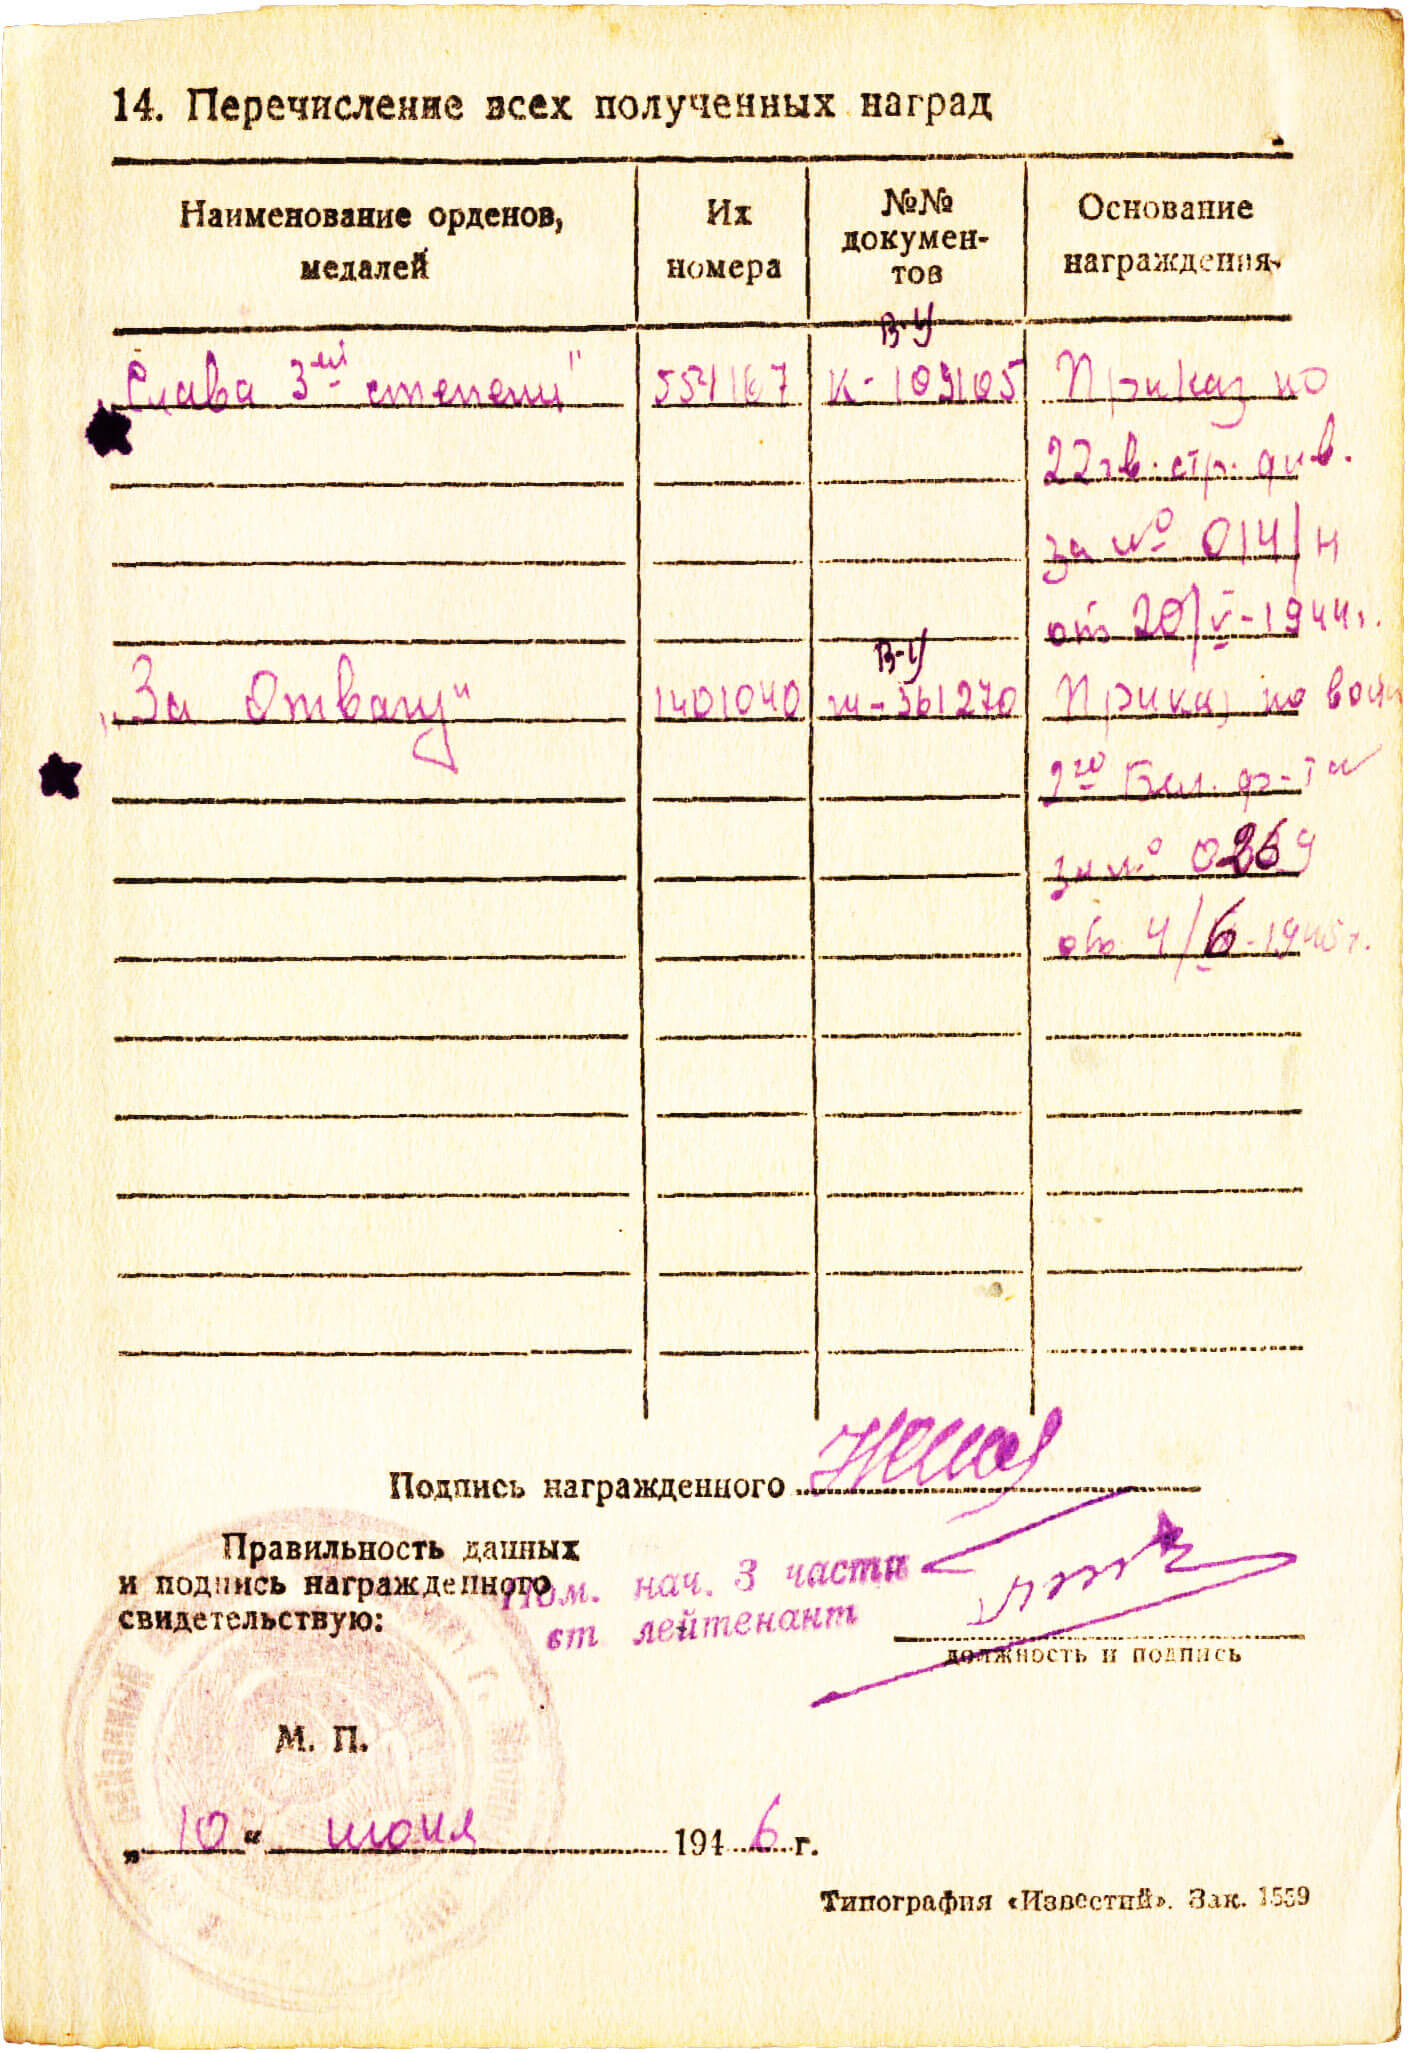 14. Перечисление всех полученных наград
Наименование орденов, медалей
Их номера
№№ докумен-тов
Основание награждения
В-У
„Слава 3й степени" 554167 К-109105 Приказ по
22 гв. стр. див.
за № 014/н
от 20/V-1944г.
В-У
„За Отвагу" 1401040 361270 Приказ по
2го Бел. фр-та
за № 0269
от 4/6-1945г.
Подпись награжденного
Правильность данных
и подпись награжденного
свидетельствую:
Пом. нач. 3 части
ст лейтенант
должность и подпись
М. П.
„10" июня 1946 г.
Типография «Известий». Зак. 1559